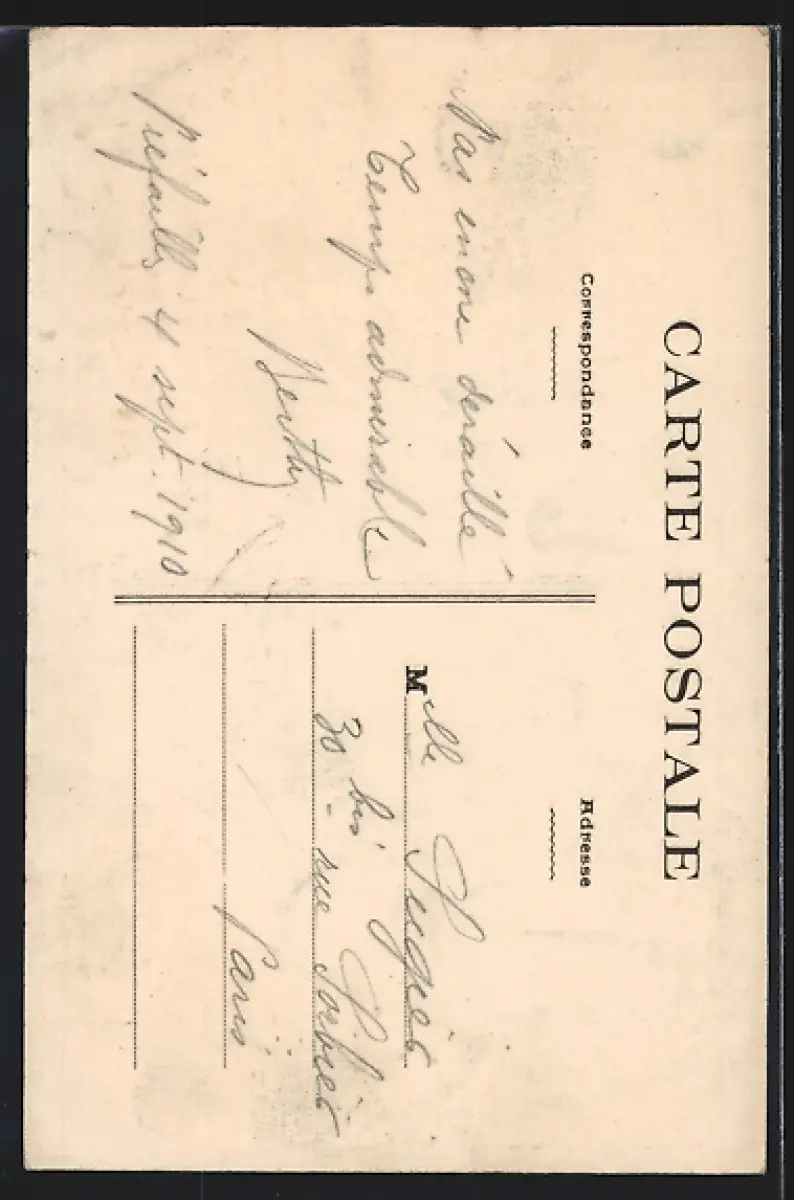 CARTE POSTALE
Correspondance
Pas encore déraillé
Temps admirable
Berthe
Préfailles 4 sept. 1910
Adresse
Melle
30 bis rue Sorbier
Paris